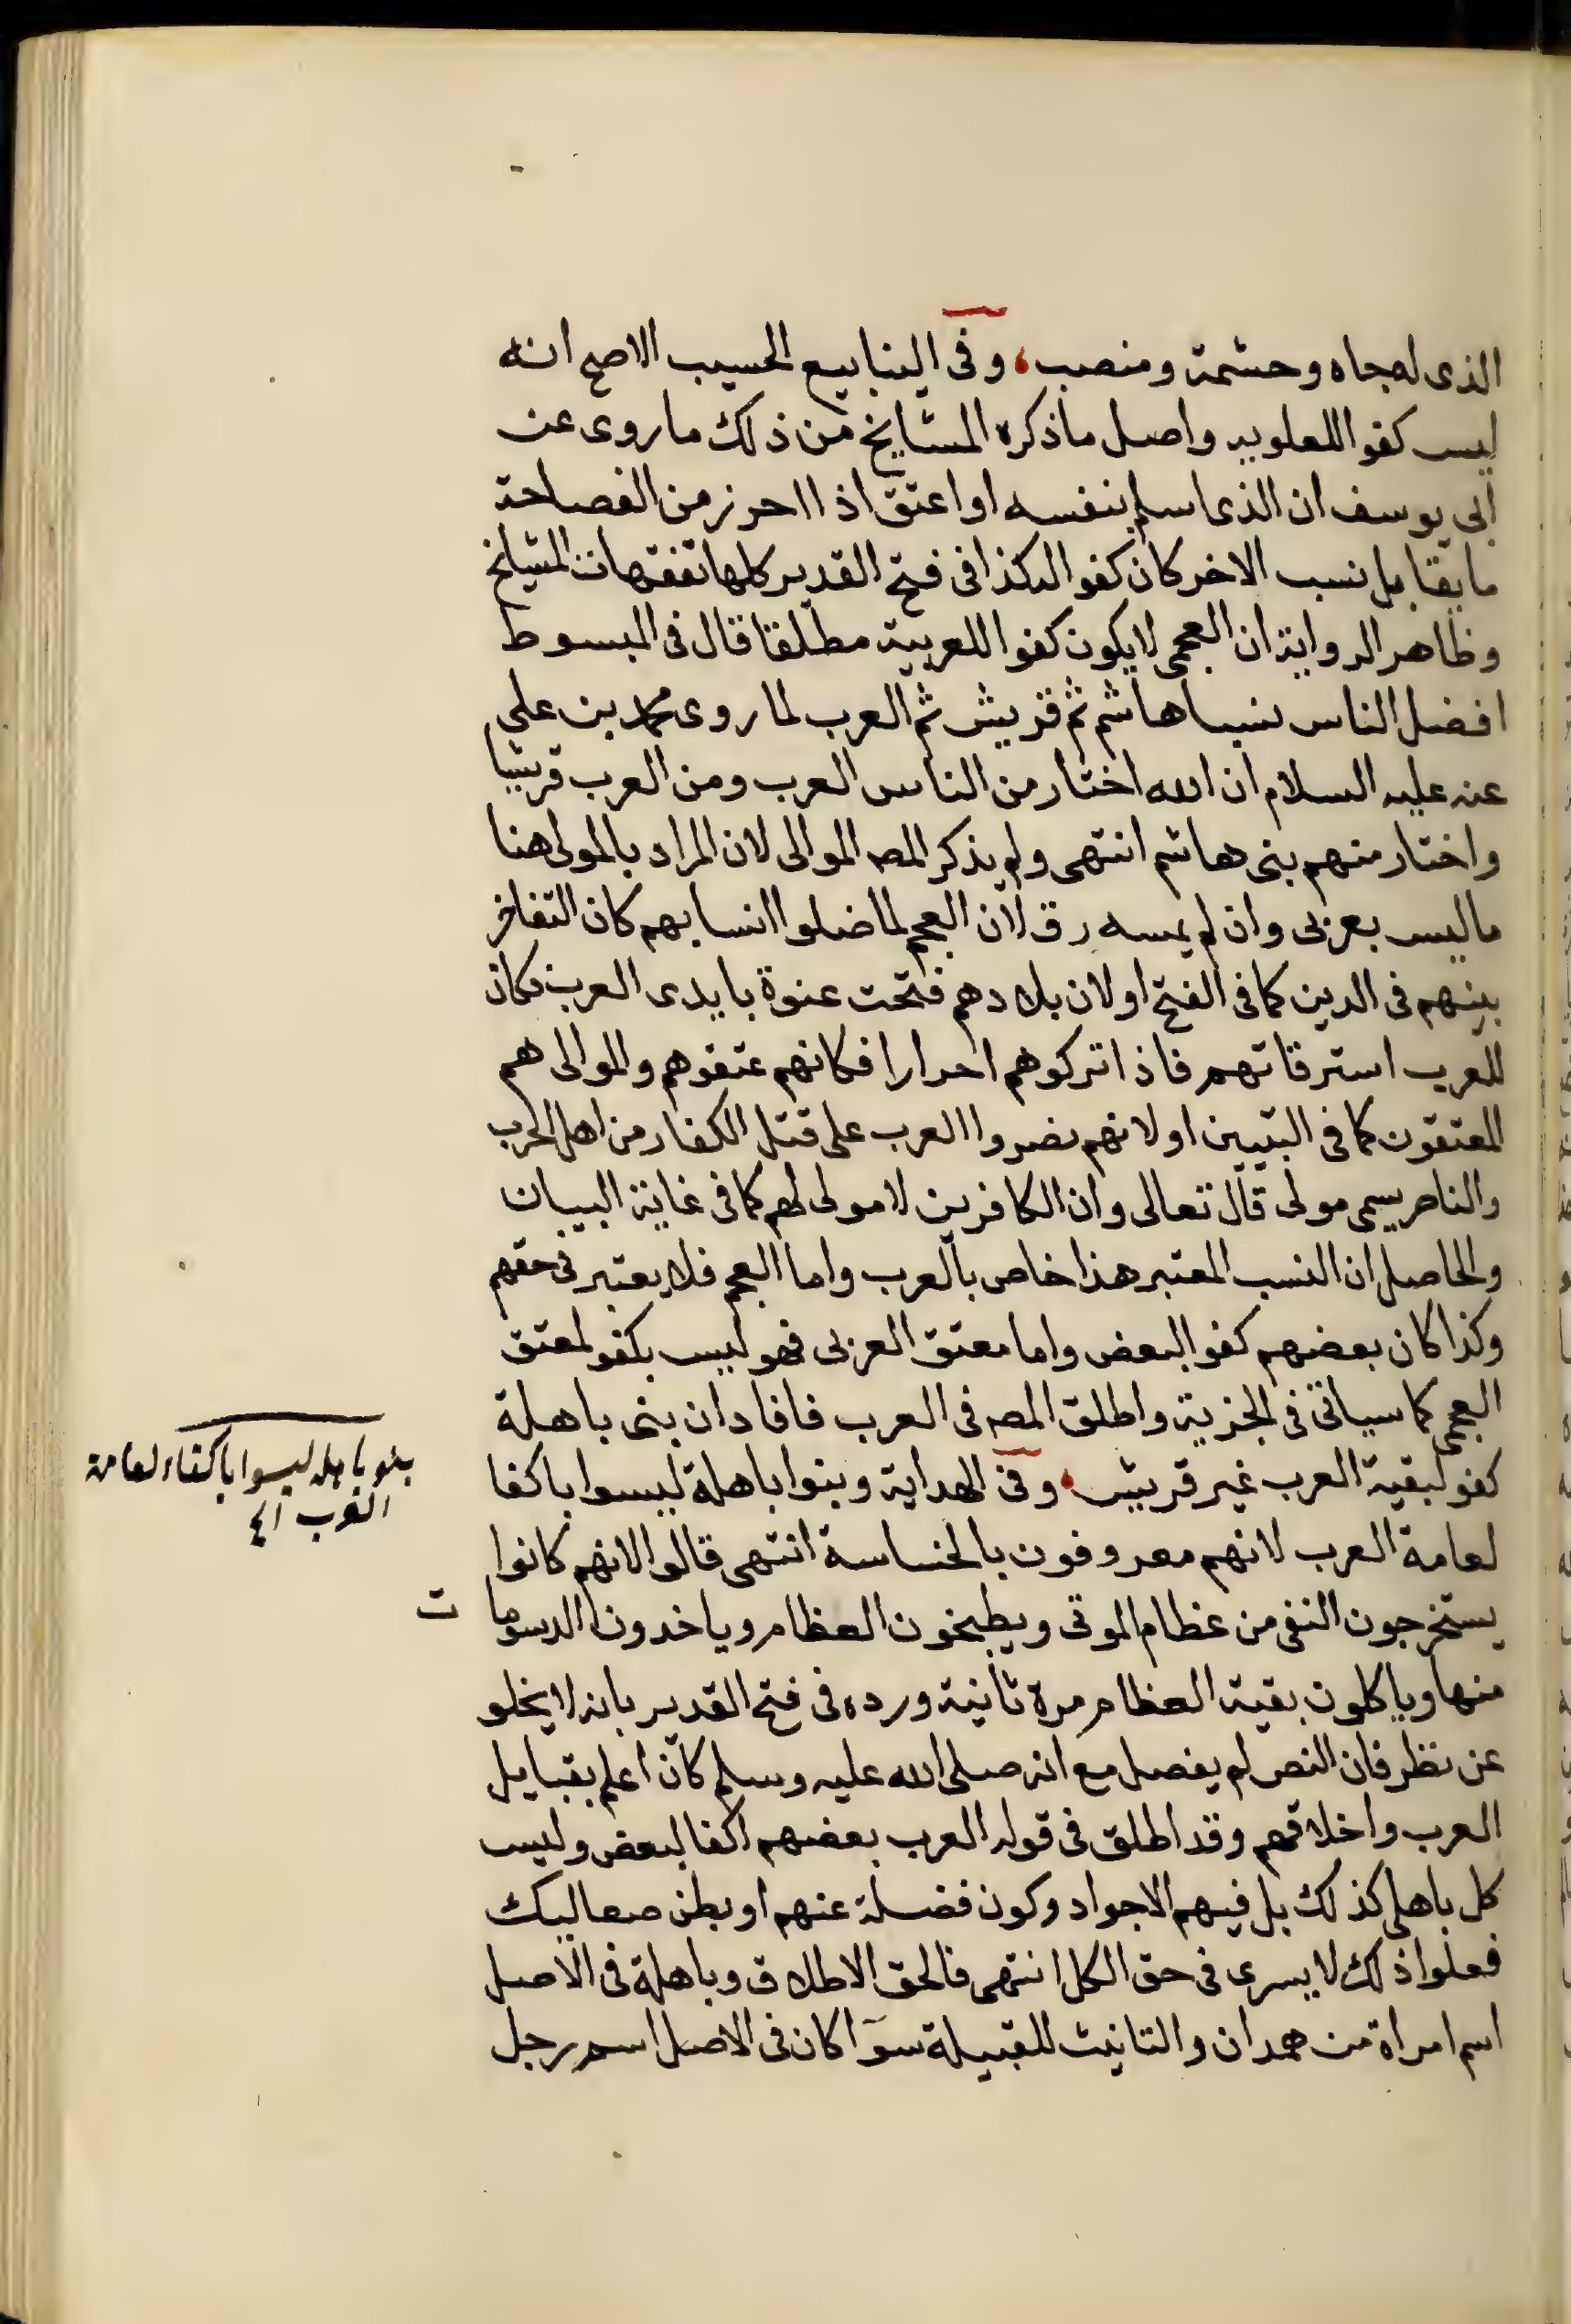 الذى له جاه وحشمة ومنصب، وفى الينابيع الحسيب الاصح انه
ليس كفوا للعلويه واصل ما ذكره المشايخ من ذلك ما روى عن
ابى يوسف ان الذى اسلم بنفسه او اعتق اذا احرز من الفصاحة
ما يقابل نسب الاخر كان كفوا له كذا فى فتح القدير كلها تفقهات المشايخ
وظاهر الرواية ان العجمى لا يكون كفوا للعربية مطلقا قال فى المبسوط
افضل الناس نسبا هاشم ثم قريش ثم العرب لما روى محمد بن على
عنه عليه السلام ان الله اختار من الناس العرب ومن العرب قريشا
واختار منهم بنى هاشم انتهى ولم يذكر المصـ الموالى لان المراد بالمولى هنا
ما ليس بعربى وان لم يمسه رق لان العجم لما ضلوا انسابهم كان التفاخر
بينهم فى الدين كما فى الفتح او لان بلادهم فتحت عنوة بايدى العرب فكان
للعرب استرقاتهم فاذا تركوهم احرارا فكانهم عتقوهم والموالى هم
المعتقون كما فى التبيين او لانهم نصروا العرب على قتل الكفار من اهل الحرب
والناصر يسمى مولى قال تعالى وان الكافرين لا مولى لهم كما فى غاية البيان
والحاصل ان النسب المعتبر هذا خاص بالعرب واما العجم فلا يعتبر فى حقهم
وكذا كان بعضهم كفوا لبعض واما معتق العربى فهو ليس بكفو لمعتق
العجمى كما سياتى فى الحرية واطلق المصـ فى العرب فافاد ان بنى باهلة
كفو لبقية العرب غير قريش، وفى الهداية وبنوا باهلة ليسوا باكفا
لعامة العرب لانهم معروفون بالخساسة انتهى قالوا لانهم كانوا
يستخرجون النفى من عظام الموتى ويطبخون العظام وياخدون الدسومات
منها وياكلون بقية العظام مرة ثانية ورده فى فتح القدير بانه لا يخلو
عن نظر فان النص لم يفصل مع انه صلى الله عليه وسلم كان اعلم بقبايل
العرب واخلاقهم وقد اطلق فى قوله العرب بعضهم اكفا لبعض وليس
كل باهلى كذلك بل فيهم الاجواد وكون فضلة عنهم او بطن صعاليك
فعلوا ذلك لا يسرى فى حق الكل انتهى فالحق الاطلاق وباهلة فى الاصل
اسم امراة من همدان والتانيث للقبيلة سوآ كان فى الاصل اسم رجل
بنو باهله ليسوا باكفاء لعامة
العرب